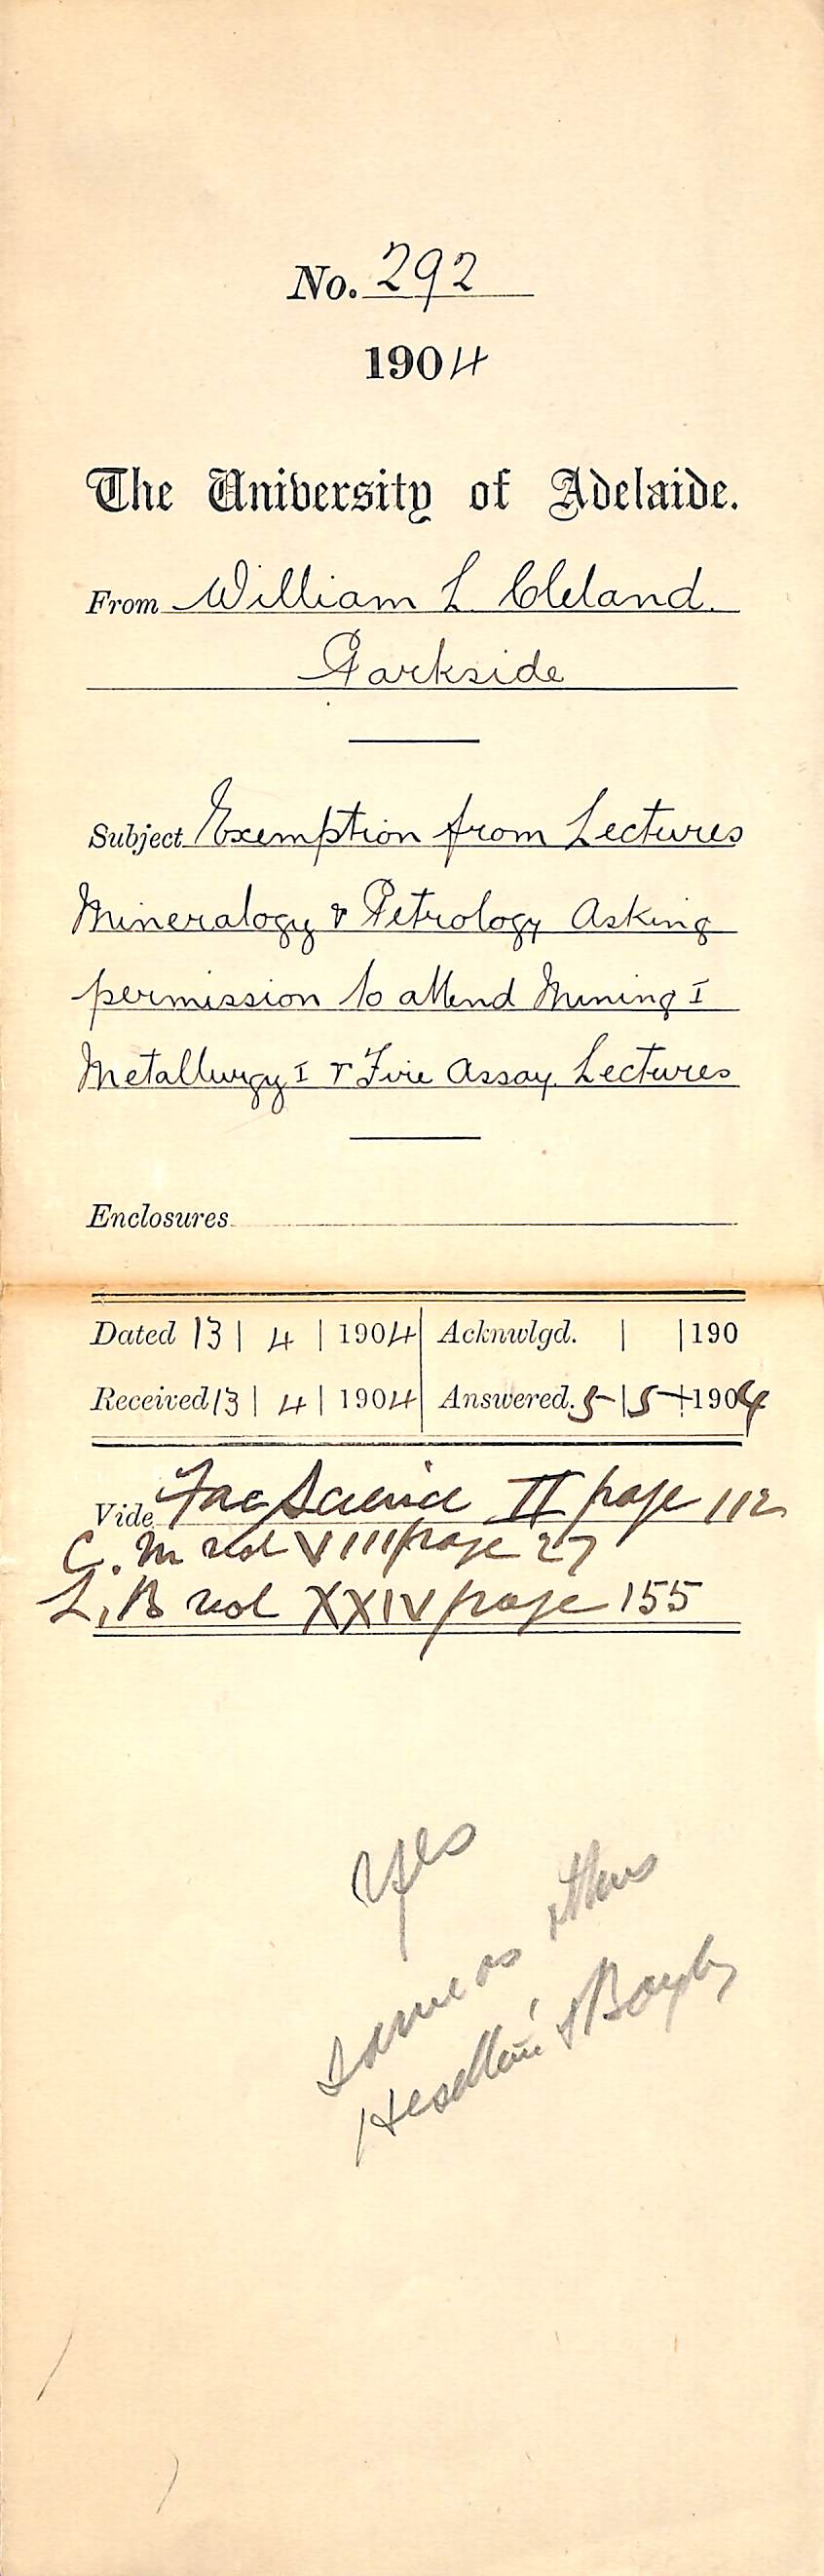 No. 292
1904
The University of Adelaide.
From William L Cleland.
Parkside
Subject Exemption from Lectures
Mineralogy & Petrology Asking
permission to attend Mining I
Metallurgy I & Fire Assay Lectures
Enclosures
Dated 13 | 4 | 1904 Acknwlgd. | | 190
Received 13 | 4 | 1904 Answered. 5 | 5 | 1904
Vide Fac Science II page 112
C. M vol VIII page 27
L, B vol XXIV page 155
Yes
Same as
&